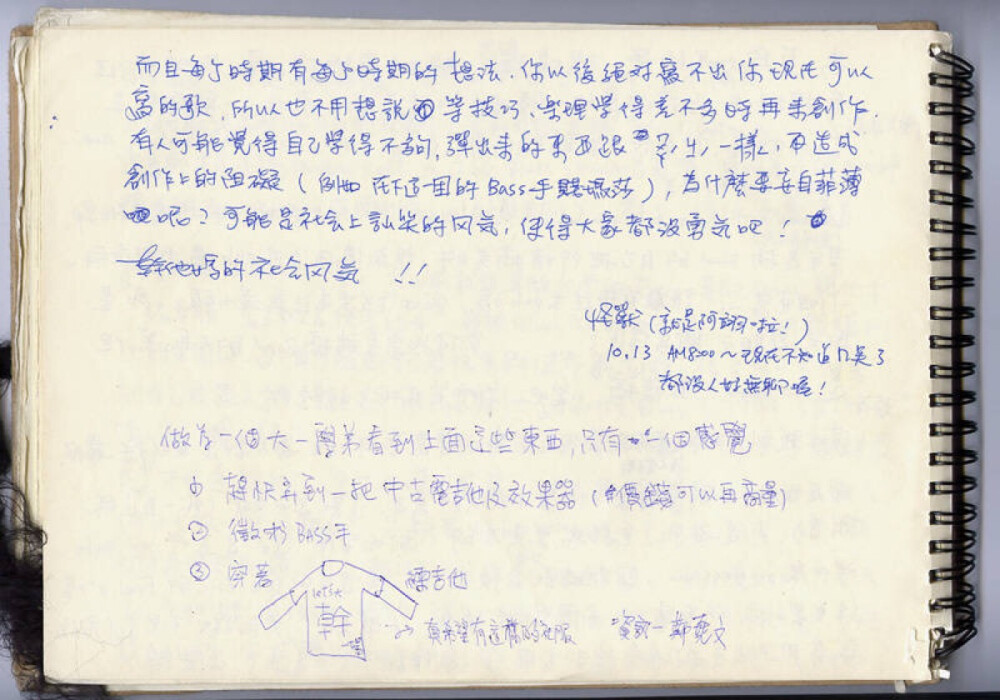 而且每个時期有每个時期的想法.你以後絕对寫不出你現在可以
寫的歌,所以也不用想說等技巧、樂理學得差不多時再來創作.
有人可能覺得自己學得不夠,彈出來的東西跟 一樣,而造成
創作上的阻礙(例如在下這一团的Bass手),為什麼要妄自菲薄
呢?可能是社会上訕笑的风気,使得大家都没勇気吧!
幹他媽的社会风気 !!
怪獸(就是阿翔啦!)
10.13 AM8:00~現在不知道几点了
都没人好無聊喔!
做為一個大一學弟看到上面這些東西,只有一個感覺
① 趕快弄到一把中古電吉他及效果器(價錢可以再商量)
② 徵求BASS手
③ 穿著 彈吉他
LET'S 幹
真希望有這樣的衣服 資訊一鄭寬文